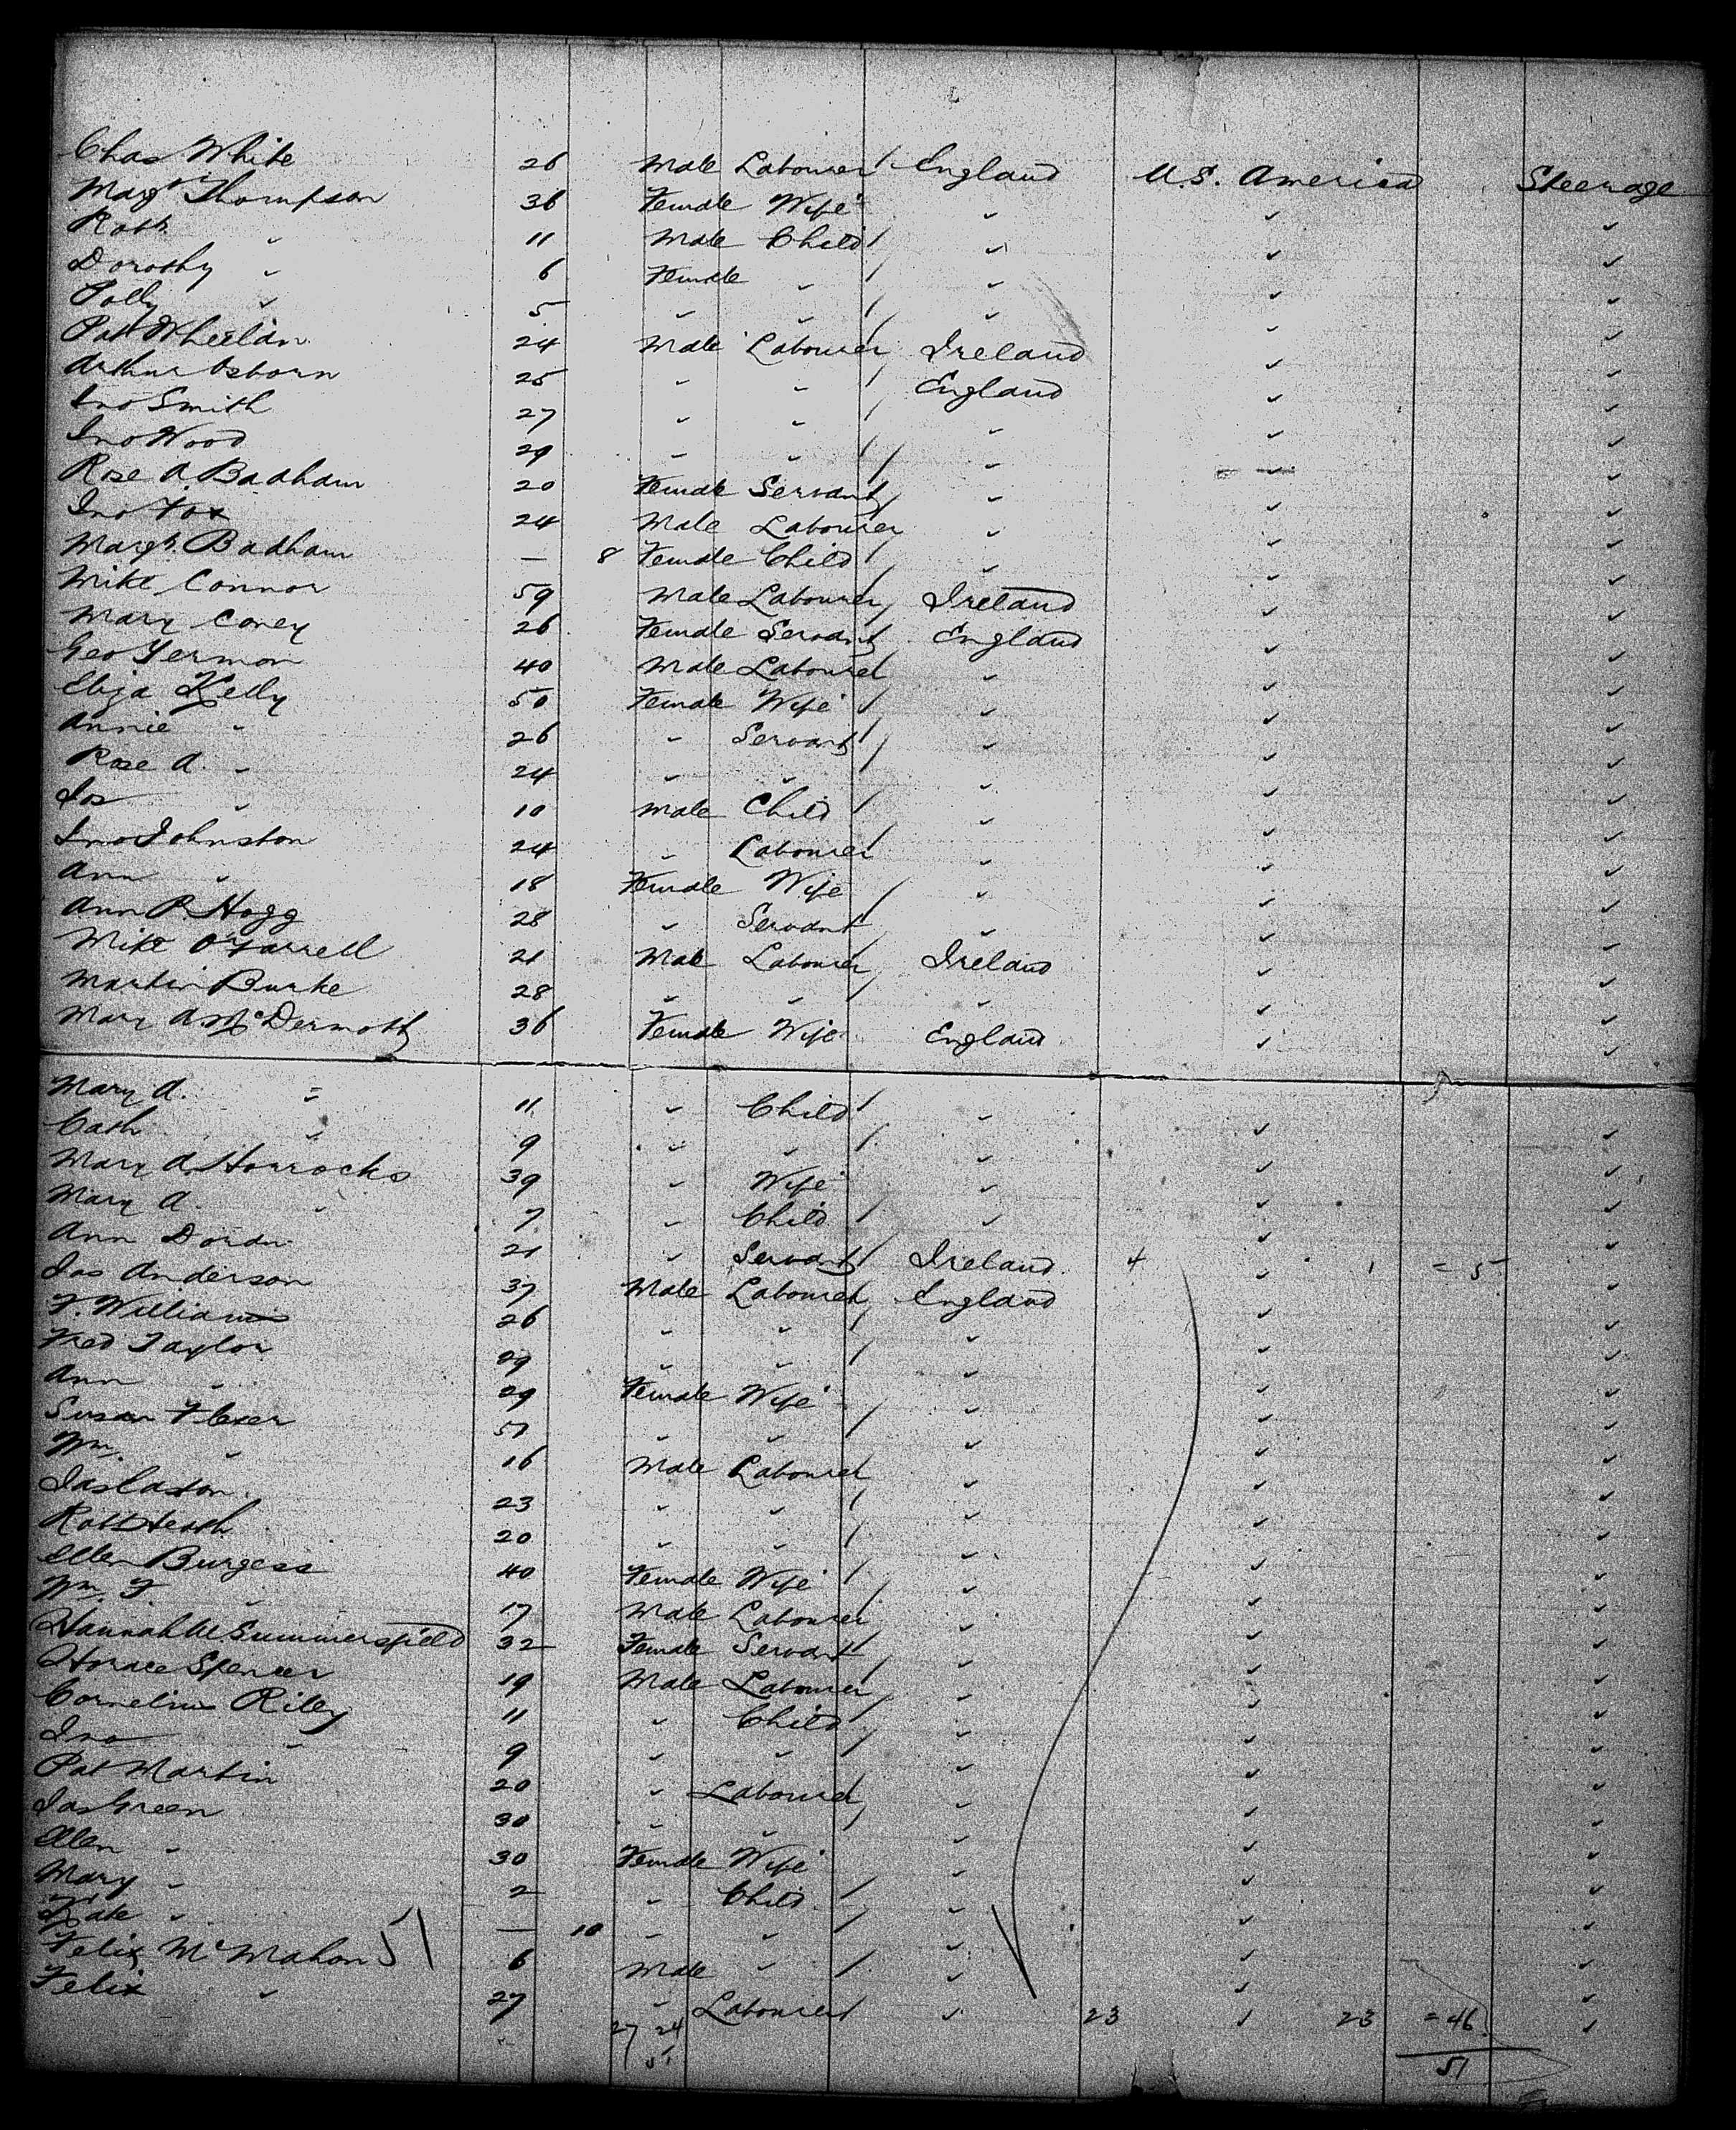 Chas White 26 Male Labourer England U.S. America Steerage
Margt Thompson 36 Female Wife " " "
Robt " 11 Male Child " " "
Dorothy " 6 Female " " " "
Polly " 5 " " " " "
Pat Wheelan 24 Male Labourer Ireland " "
Arthur Osborn 25 " " England " "
Jno Smith 27 " " " " "
Jno Wood 29 " " " " "
Rose A. Badham 20 Female Servant " " "
Jno Fox 24 Male Labourer " " "
Margt. Badham — 8 Female Child " " "
Mike Connor 59 Male Labourer Ireland " "
Mary Coney 26 Female Servant England " "
Geo Yermon 40 Male Labourer " " "
Eliza Kelly 50 Female Wife " " "
Annie " 26 " Servant " " "
Rose A. " 24 " " " " "
Jos " 10 Male Child " " "
Jno Johnston 24 " Labourer " " "
Ann " 18 Female Wife " " "
Ann P. Hogg 28 " Servant " " "
Mike O'Farrell 21 Male Labourer Ireland " "
Martin Burke 28 " " " " "
Mary A. McDermott 36 Female Wife England "
Mary A. " 11 " Child " " "
Cath " 9 " " " " "
Mary A. Horrocks 39 " Wife " " "
Mary A. " 7 " Child " " "
Ann Doran 21 " Servant Ireland 4 " 1 = 5 "
Jas Anderson 37 Male Labourer England " "
F. Williams 26 " " " " "
Fred Taylor 29 " " " " "
Ann " 29 Female Wife " " "
Susan 51 " " " " "
Wm. " 16 Male Labourer " " "
Jas 23 " " " " "
Robt Heath 20 " " " " "
Ellen Burgess 40 Female Wife " " "
Wm. F. " 17 Male Labourer " " "
Hannah M. Summersfield 32 Female Servant " " "
Horace Spencer 19 Male Labourer " " "
Cornelius Riley 11 " Child " " "
Jno " 9 " " " " "
Pat Martin 20 " Labourer " " "
Jas Green 30 " " " " "
Ellen " 30 Female Wife " " "
Mary " 2 " Child " " "
Kate " — 10 " " " " "
Felix McMahon 51 6 Male " " " "
Felix " 27 " Labourer " 23 " 23 = 46 "
27 24
51 51